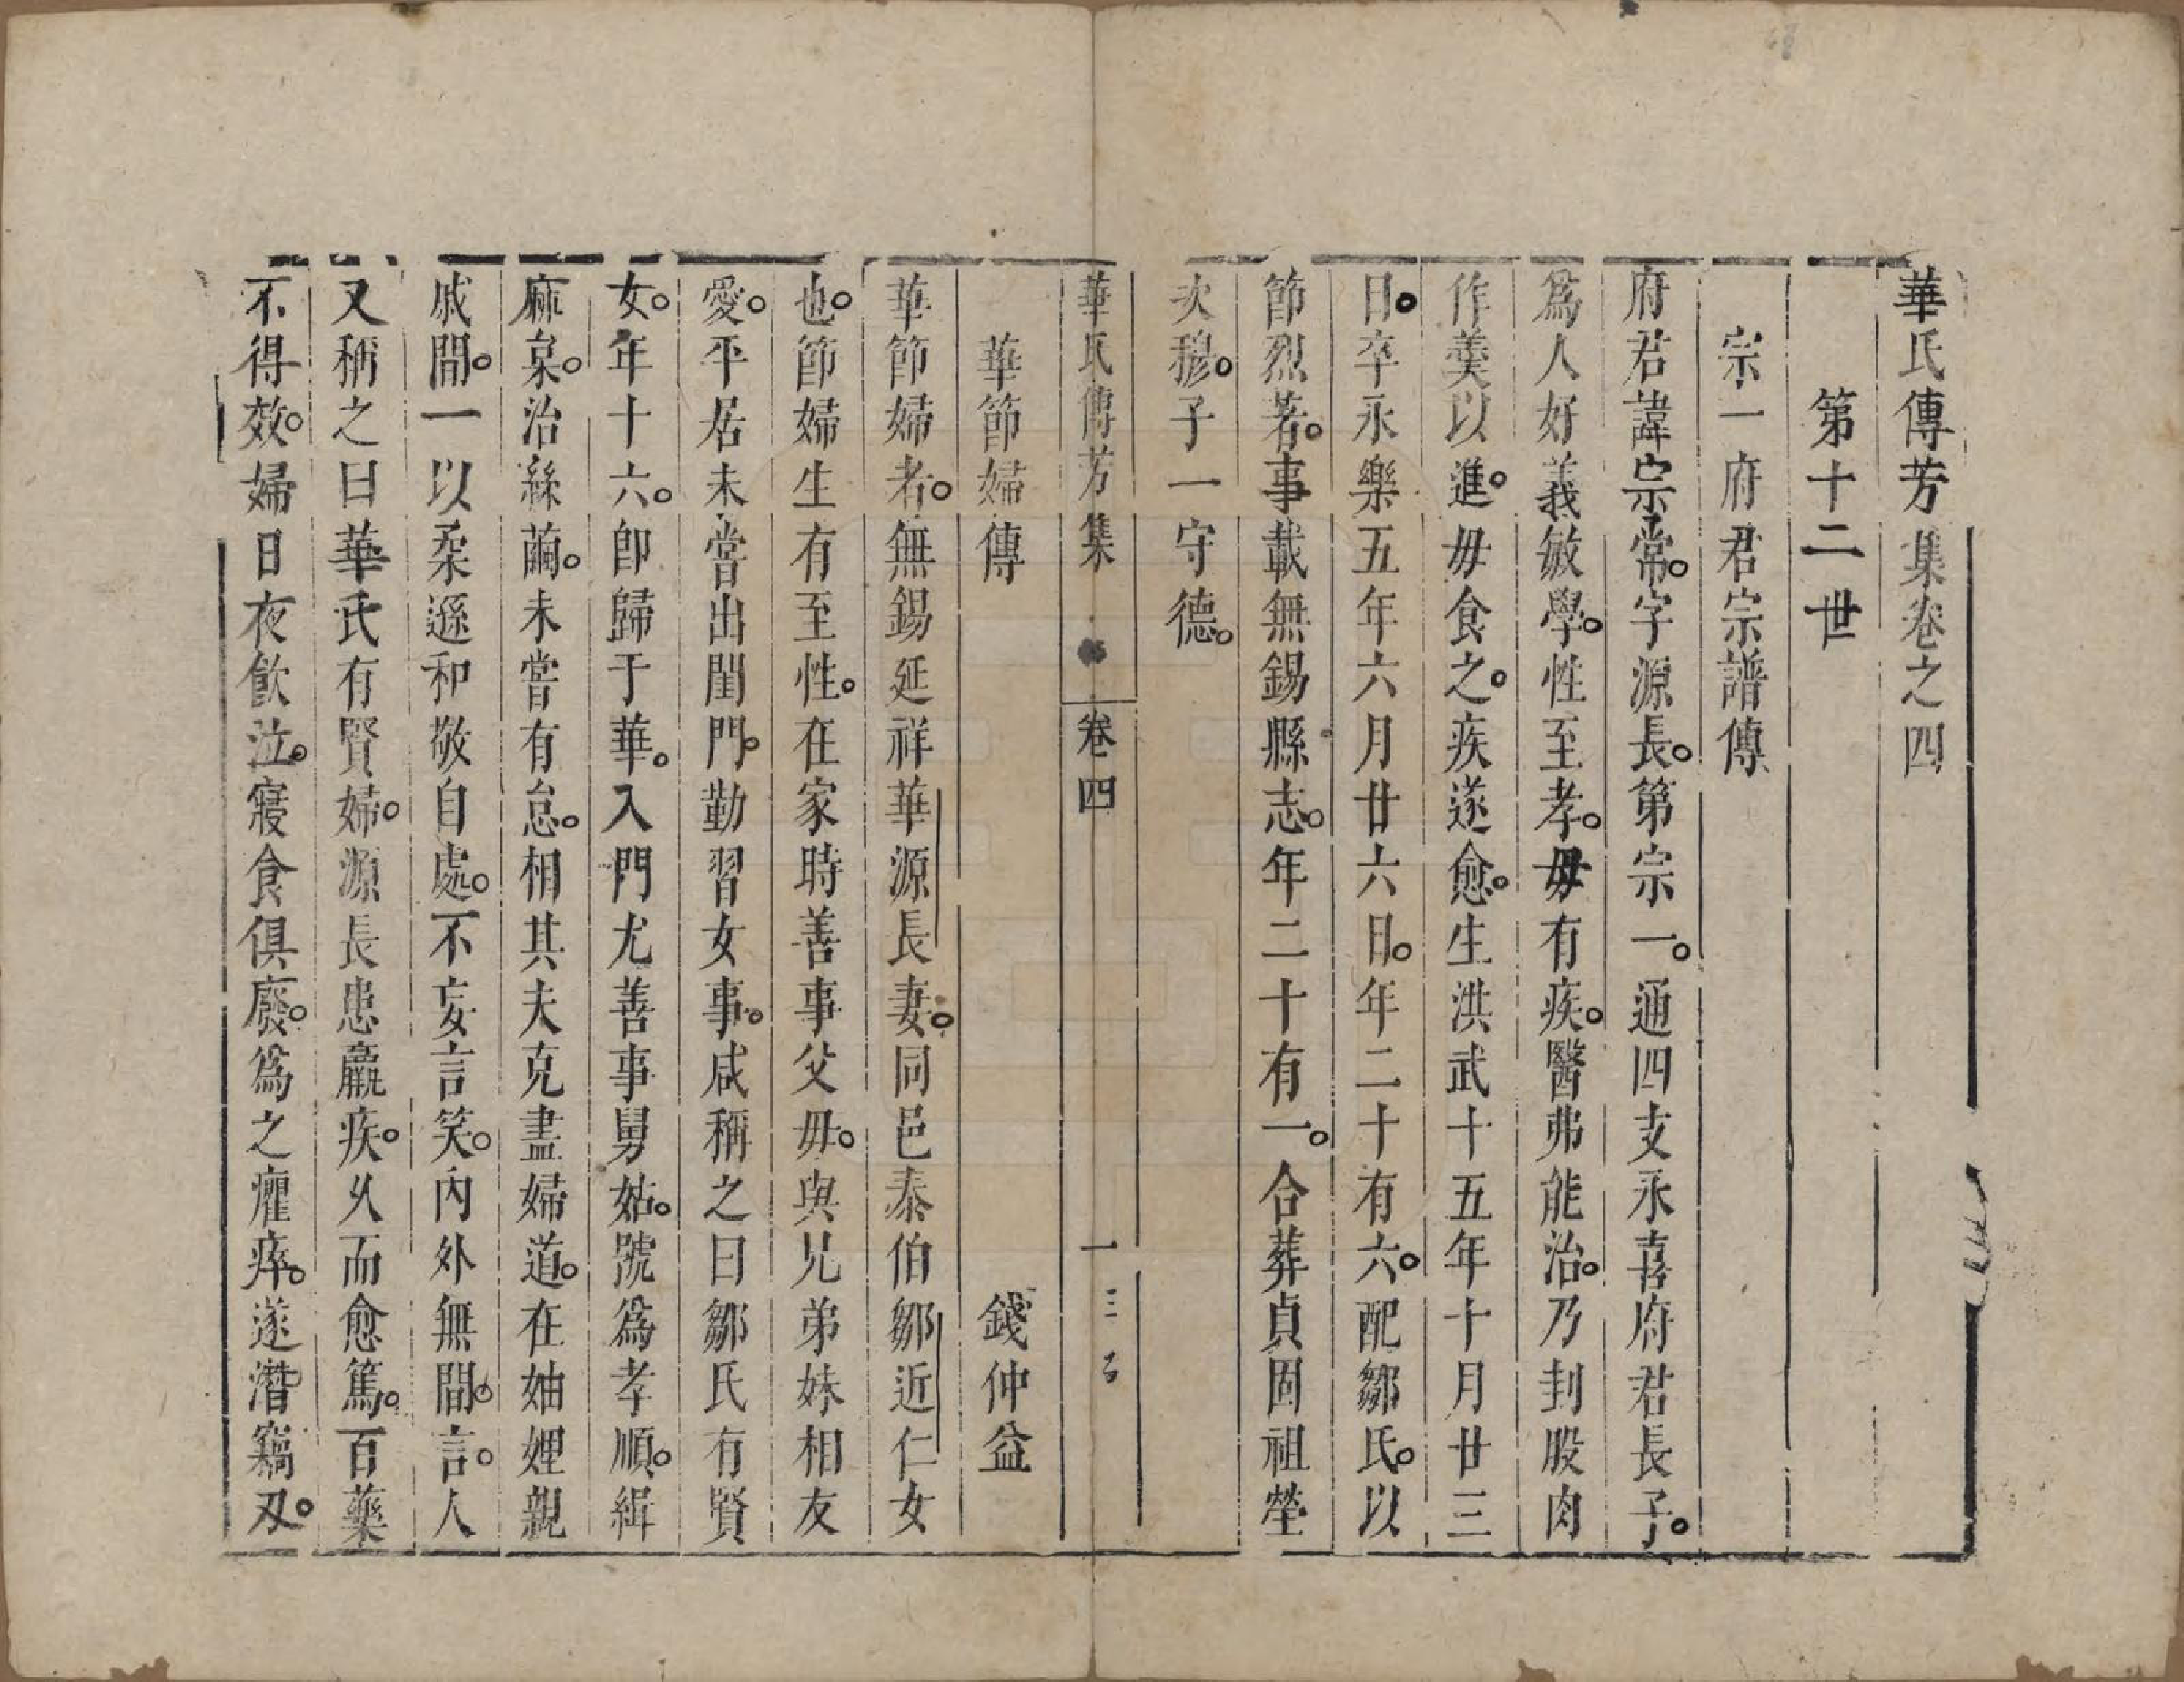 華氏傳芳集卷之四
第十二世
宗一府君宗譜傳
府君諱宗常。字源長。第宗一。通四支永喜府君長子。
爲人好義敏學。性至孝。毋有疾。醫弗能治。乃刲股肉
作羹以進。毋食之。疾遂愈。生洪武十五年十月廿三
日。卒永樂五年六月廿六日。年二十有六。配鄒氏。以
節烈著。事載無錫縣志。年二十有一。合葬貞固祖塋
次穆。子一守德。
華氏傳芳集 卷四 一
華節婦傳 錢仲益
華節婦者。無錫延祥華源長妻。同邑泰伯鄒近仁女
也。節婦生有至性。在家時善事父毋。與兄弟妹相友
愛。平居未嘗出閨門。勤習女事。咸稱之曰鄒氏有賢
女。年十六。卽歸于華。入門尤善事舅姑。號爲孝順。緝
麻枲。治絲繭。未嘗有怠。相其夫克盡婦道。在妯娌親
戚間。一以柔遜和敬自處。不妄言笑。內外無間言。人
又稱之曰華氏有賢婦。源長患羸疾。久而愈篤。百藥
不得效。婦日夜飮泣。寢食俱廢。爲之癯瘁。遂潛竊刄。